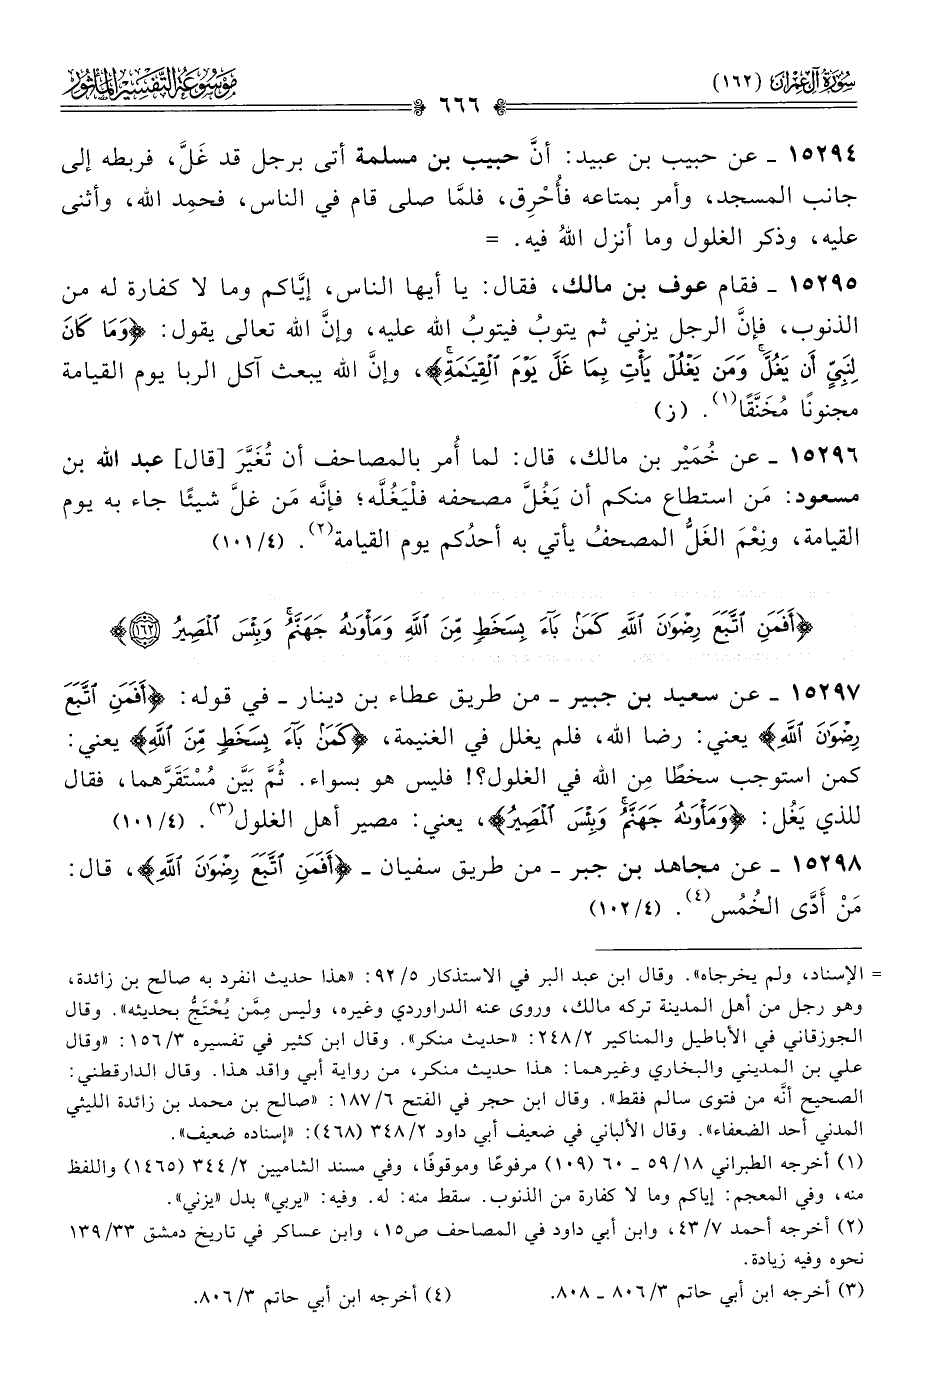 سُورَةُ آلِ عِمْرَان (١٦٢)
٦٦٦
مَوْسُوعَة التَّفْسِيرِ المَأْثُور
١٥٢٩٤ ـ عن حبيب بن عبيد: أنَّ حبيب بن مسلمة أتى برجل قد غَلَّ، فربطه إلى
جانب المسجد، وأمر بمتاعه فأُحْرِق، فلمَّا صلى قام في الناس، فحمِد الله، وأثنى
عليه، وذكر الغلول وما أنزل اللهُ فيه. =
١٥٢٩٥ ـ فقام عوف بن مالك، فقال: يا أيها الناس، إيَّاكم وما لا كفارة له من
الذنوب، فإنَّ الرجل يزني ثم يتوبُ فيتوبُ الله عليه، وإنَّ الله تعالى يقول: ﴿وَمَا كَانَ
لِنَبِيٍّ أَن يَغُلَّۚ وَمَن يَغْلُلْ يَأْتِ بِمَا غَلَّ يَوْمَ ٱلْقِيَٰمَةِۚ﴾، وإنَّ الله يبعث آكل الربا يوم القيامة
مجنونًا مُخَنَّقًا(١). (ز)
١٥٢٩٦ ـ عن خُمَيْر بن مالك، قال: لما أُمر بالمصاحف أن تُغَيَّرَ [قال] عبد الله بن
مسعود: مَن استطاع منكم أن يَغُلَّ مصحفه فلْيَغُلَّه؛ فإنَّه مَن غلَّ شيئًا جاء به يوم
القيامة، ونِعْمَ الغَلُّ المصحفُ يأتي به أحدُكم يوم القيامة(٢). (١٠١/٤)
﴿أَفَمَنِ ٱتَّبَعَ رِضْوَٰنَ ٱللَّهِ كَمَنۢ بَآءَ بِسَخَطٍ مِّنَ ٱللَّهِ وَمَأْوَىٰهُ جَهَنَّمُۚ وَبِئْسَ ٱلْمَصِيرُ ۝١٦٢﴾
١٥٢٩٧ ـ عن سعيد بن جبير ـ من طريق عطاء بن دينار ـ في قوله: ﴿أَفَمَنِ ٱتَّبَعَ
رِضْوَٰنَ ٱللَّهِ﴾ يعني: رضا الله، فلم يغلل في الغنيمة، ﴿كَمَنۢ بَآءَ بِسَخَطٍ مِّنَ ٱللَّهِ﴾ يعني:
كمن استوجب سخطًا مِن الله في الغلول؟! فليس هو بسواء. ثُمَّ بَيَّن مُسْتَقَرَّهما، فقال
للذي يَغُل: ﴿وَمَأْوَىٰهُ جَهَنَّمُۚ وَبِئْسَ ٱلْمَصِيرُ﴾، يعني: مصير أهل الغلول(٣). (١٠١/٤)
١٥٢٩٨ ـ عن مجاهد بن جبر ـ من طريق سفيان ـ ﴿أَفَمَنِ ٱتَّبَعَ رِضْوَٰنَ ٱللَّهِ﴾، قال:
مَنْ أَدَّى الخُمُس(٤). (١٠٢/٤)
= الإسناد، ولم يخرجاه». وقال ابن عبد البر في الاستذكار ٩٢/٥: «هذا حديث انفرد به صالح بن زائدة،
وهو رجل من أهل المدينة تركه مالك، وروى عنه الدراوردي وغيره، وليس مِمَّن يُحْتَجُّ بحديثه». وقال
الجوزقاني في الأباطيل والمناكير ٢٤٨/٢: «حديث منكر». وقال ابن كثير في تفسيره ١٥٦/٣: «وقال
علي بن المديني والبخاري وغيرهما: هذا حديث منكر، من رواية أبي واقد هذا. وقال الدارقطني:
الصحيح أنَّه من فتوى سالم فقط». وقال ابن حجر في الفتح ١٨٧/٦: «صالح بن محمد بن زائدة الليثي
المدني أحد الضعفاء». وقال الألباني في ضعيف أبي داود ٣٤٨/٢ (٤٦٨): «إسناده ضعيف».
(١) أخرجه الطبراني ٥٩/١٨ ـ ٦٠ (١٠٩) مرفوعًا وموقوفًا، وفي مسند الشاميين ٣٤٤/٢ (١٤٦٥) واللفظ
منه، وفي المعجم: إياكم وما لا كفارة من الذنوب. سقط منه: له. وفيه: «يربي» بدل «يزني».
(٢) أخرجه أحمد ٤٣/٧، وابن أبي داود في المصاحف ص١٥، وابن عساكر في تاريخ دمشق ١٣٩/٣٣
نحوه وفيه زيادة.
(٣) أخرجه ابن أبي حاتم ٨٠٦/٣ ـ ٨٠٨. (٤) أخرجه ابن أبي حاتم ٨٠٦/٣.